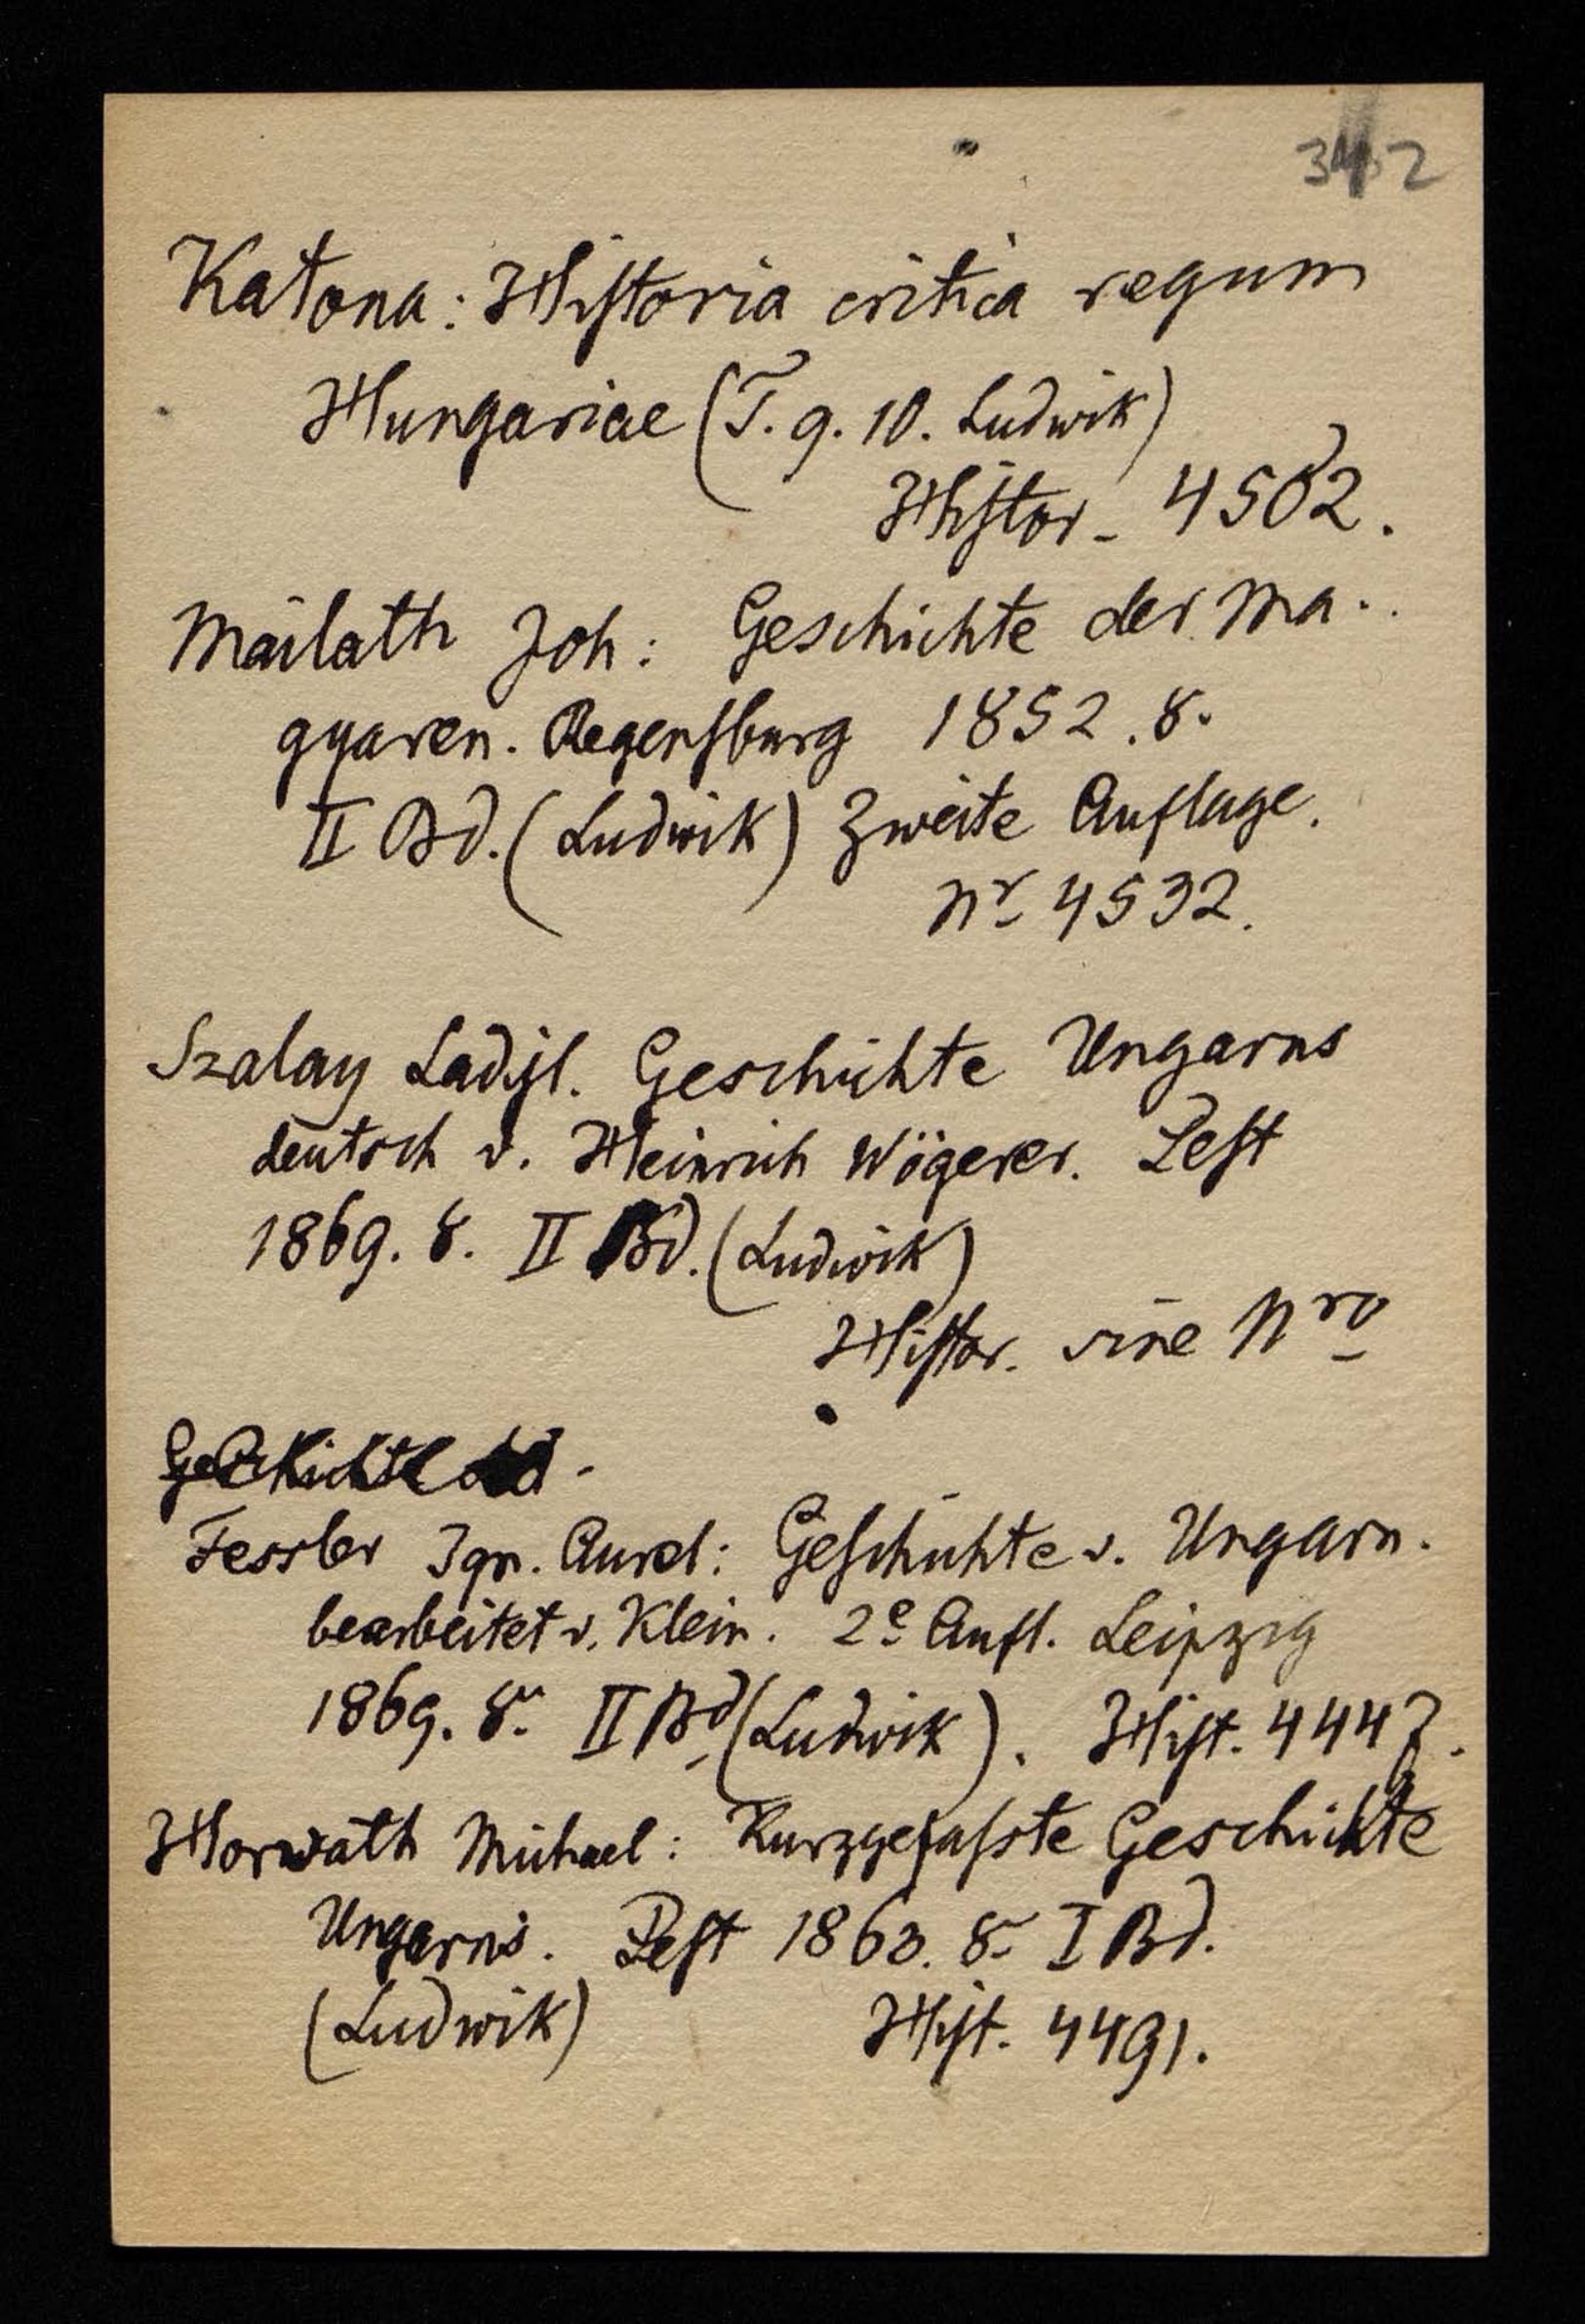 Katona: Historia critica regum
Hungariae (T. 9. 10. Ludwik)
Histor. 4502.
Máilath Joh: Geschichte der Ma..
gyaren. Regensburg 1852. 8.
II Bd. (Ludwik) Zweite Auflage.
Nr 4532.
Szalay Ladisl. Geschichte Ungarns
deutsch v. Heinrich Wögerer. Pest
1869. 8. II Bd. (Ludwik)
Histor. sine Nro
Geschichte
Fessler Ign. Aurel: Geschichte v. Ungarn.
bearbeitet v. Klein. 2e Aufl. Leipzig
1869. 8. II Bd (Ludwik). Hist. 4447.
Horwath Michael: Kurzgefasste Geschichte
Ungarns. Pest 1863. 8. I Bd.
(Ludwik) Hist. 4491.